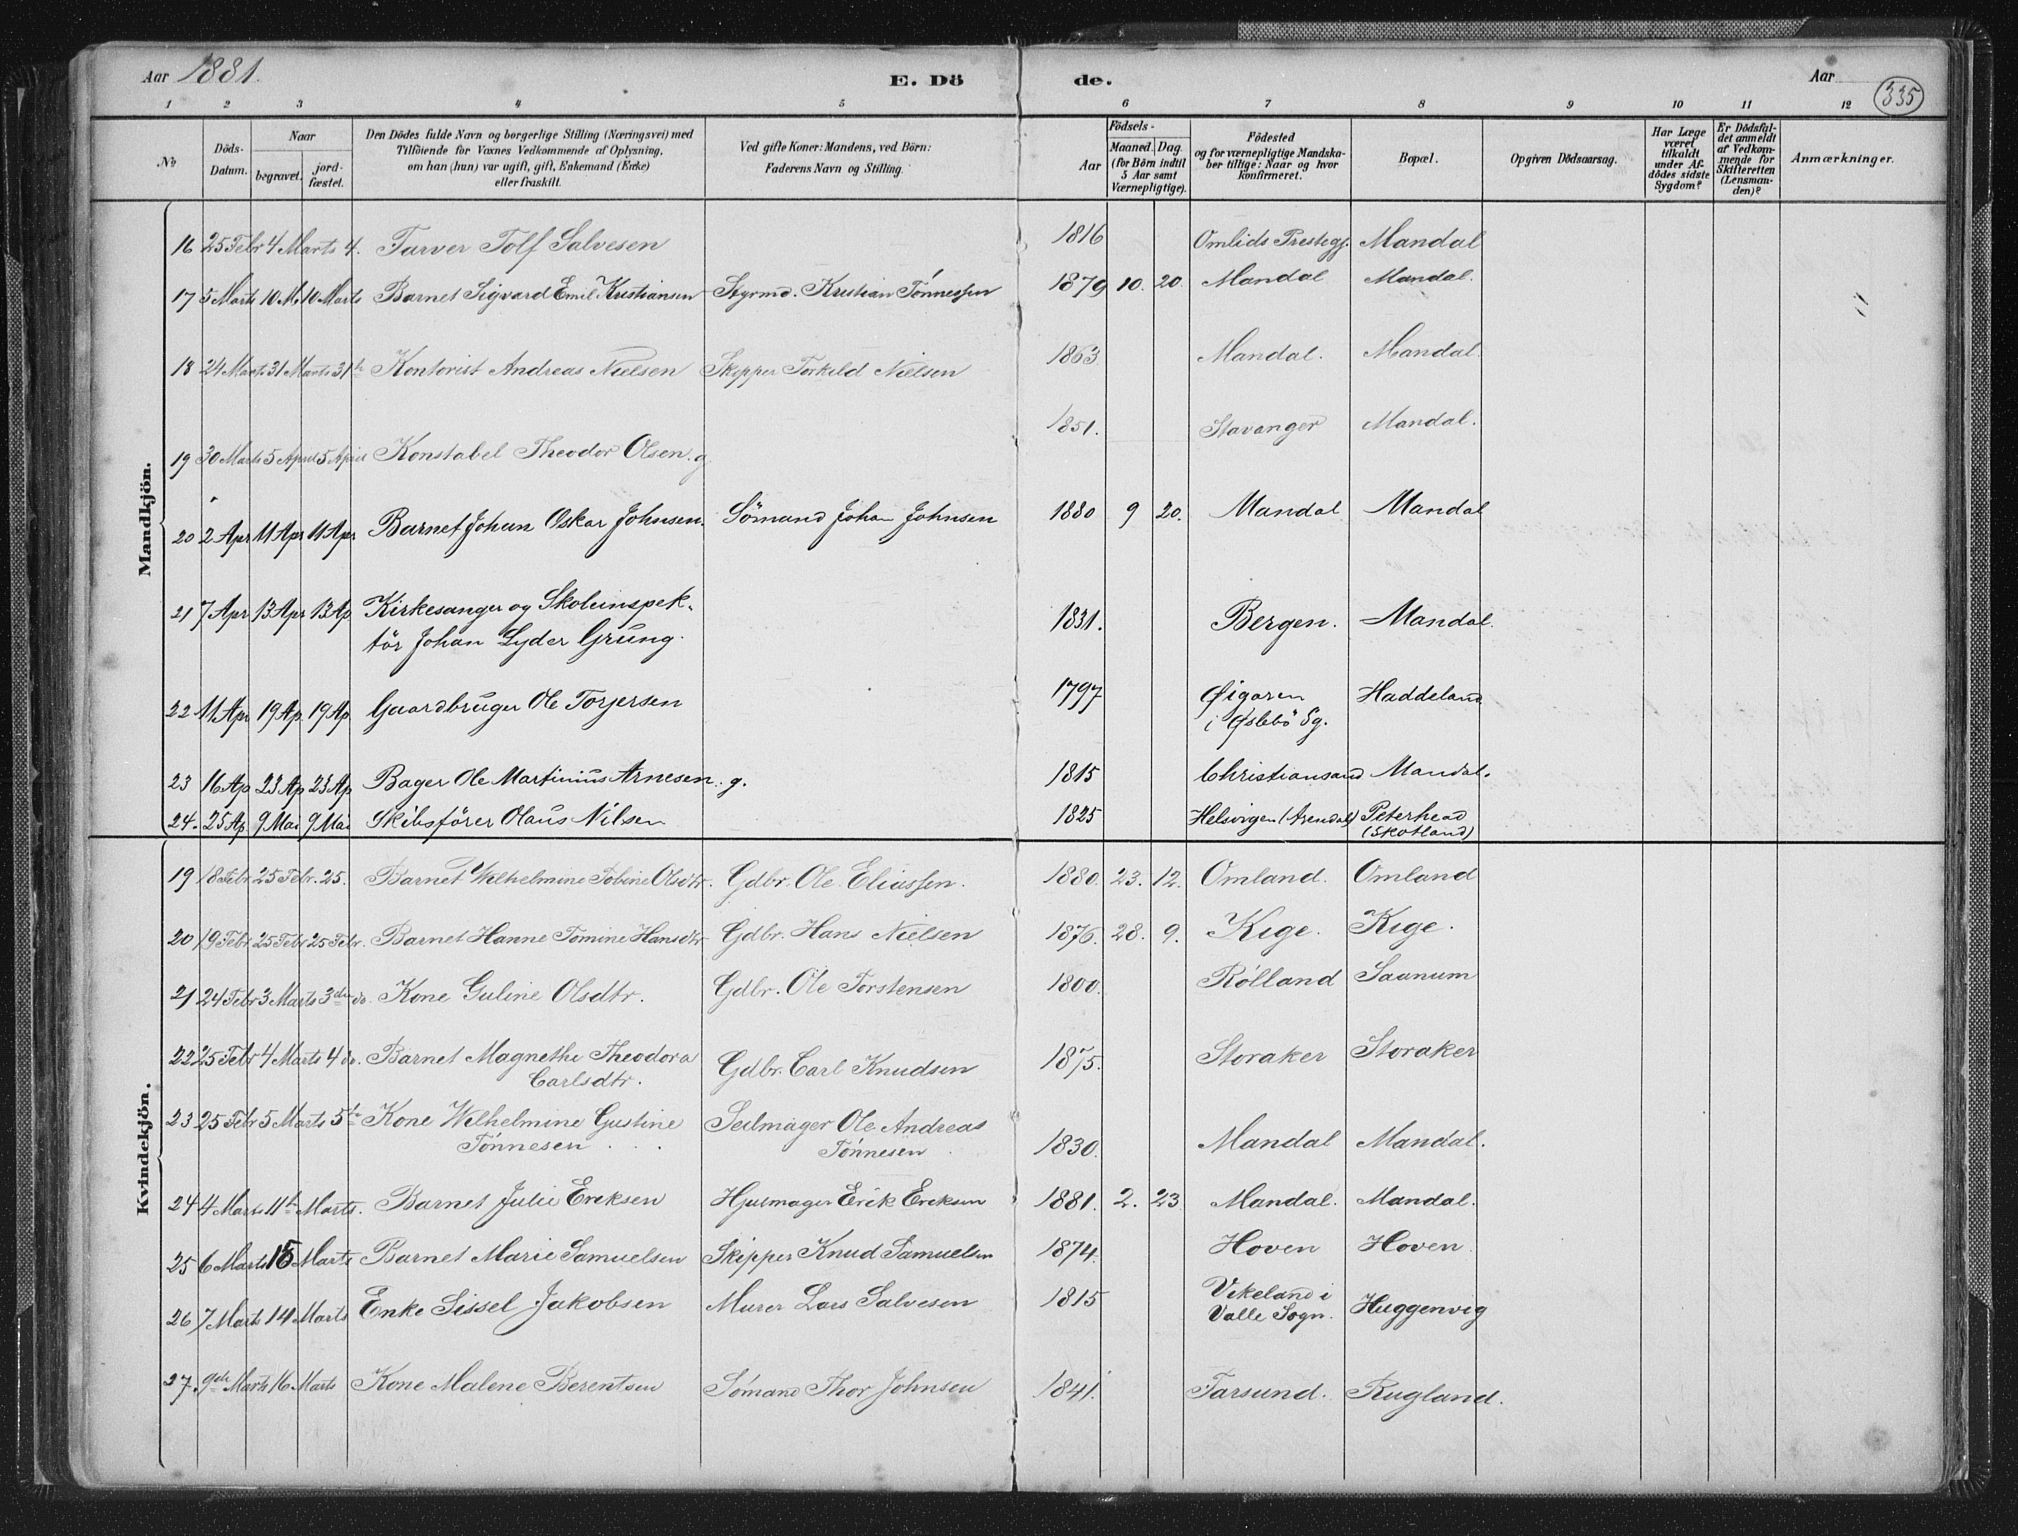 Aar 1881. E. Dö de. Aar 335
1 2 3 4 5 6 7 8 9 10 11 12
No
Döds-
Datum.
Naar
begravet.
jord-
fæstet.
Den Dödes fulde Navn og borgerlige Stilling (Næringsvei) med
Tilföiende for Voxnes Vedkommende af Oplysning,
om han (hun) var ugift, gift, Enkemand (Enke)
eller fraskilt.
Ved gifte Koner: Mandens, ved Börn:
Faderens Navn og Stilling.
Födsels-
Aar
Maaned. Dag
(for Börn indtil
5 Aar samt
Værnepligtige).
Födested
og for værnepligtige Mandska-
ber tillige: Naar og hvor
konfirmeret.
Bopæl.
Opgiven Dödsaarsag.
Har Læge
været
tilkaldt
under Af-
dödes sidste
Sygdom?
Er Dödsfal-
det anmeldt
af Vedkom-
mende for
Skifteretten
(Lensman-
den)?
Anmærkninger.
Mandkjön.
16 25 Febr 4 Marts 4. Farver Tolf Salvesen 1816 Omlids Prestegj. Mandal
17 5 Marts 10 M. 10 Marts Barnet Sigvard Emil Kristiansen Styrmd. Kristian Tönnessen 1879 10. 20. Mandal Mandal.
18 24 Marts 31 Marts 31te Kontorist Andreas Nielsen Skipper Torkild Nielsen 1863 Mandal. Mandal.
19 30 Marts 5 April 5 April Konstabel Theodor Olsen. g 1851. Stavanger Mandal.
20 2 Apr 11 Apr 11 Apr Barnet Johan Oskar Johnsen. Sömand Johan Johnsen 1880 9 20. Mandal Mandal
21 7 Apr 13 Apr 13 Ap Kirkesanger og Skoleinspek-
tör Johan Lyder Grung. 1831. Bergen. Mandal.
22 11 Apr 19 Ap. 19 Ap. Gaardbruger Ole Torjersen 1797 Øigaren
i Øslebö Sg. Haddeland
23 16 Ap 23 Ap 23 Ap Bager Ole Martinius Arnesen. g. 1815 Christiansand Mandal.
24. 25 Ap. 9 Mai 9 Mai Skibsförer Olaus Nilsen 1825 Helsvigen (Arendal) Peterhead
(Skotland)
Kvindekjön.
19 18 Febr 25 Febr. 25. Barnet Wilhelmine Tobine Olsdtr. Gdbr. Ole Eliassen. 1880. 23. 12. Omland. Omland
20 19 Febr 25 Febr 25 Febr. Barnet Hanne Tomine Hansdtr Gdbr. Hans Nielsen 1876. 28. 9. Kige. Kige.
21 24 Febr 3 Marts 3de do. Kone Guline Olsdtr. Gdbr. Ole Torstensen 1800. Rölland Saanum
22 25 Febr 4 Marts 4 do. Barnet Magnethe Theodora
Carlsdtr. Gdbr. Carl Knudsen 1875. Storaker Storaker
23 25 Febr 5 Marts 5te Kone Wilhelmine Gustine
Tönnesen Seilmager Ole Andreas
Tönnesen 1830. Mandal Mandal.
24 4 Marts 11te Marts. Barnet Julie Ereksen Hjulmager Erik Ereksen 1881. 2. 23 Mandal. Mandal.
25 6 Marts 15 Marts Barnet Marie Samuelsen Skipper Knud Samuelsen 1874. Hoven Hoven.
26 7 Marts 14 Marts Enke Sissel Jakobsen Murer Lars Salvesen 1815 Vikeland i
Valle Sogn. Huggenvig
27. 9de Marts 16 Marts Kone Malene Berentsen Sömand Thor Johnsen 1841. Farsund. Rugland.